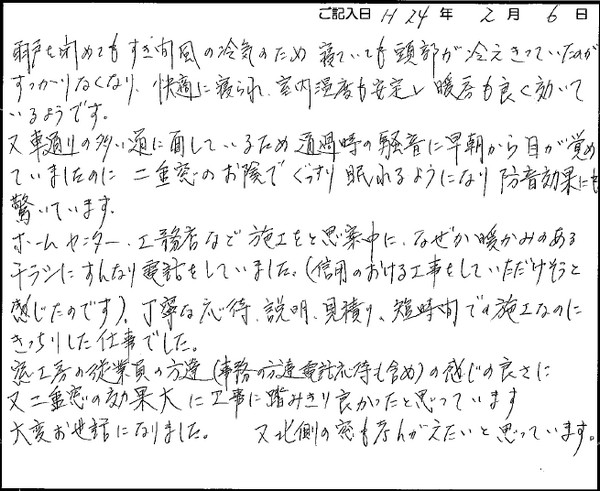 ご記入日 H24年 2月 6日
雨戸を閉めてもすき間風の冷気のため 寝ていても頭部が冷えきっていたのが
すっかりなくなり、快適に寝られ、室内湿度も安定し 暖房も良く効いて
いるようです。
又車通りの多い道に面しているため 通過時の騒音に早朝から目が覚め
ていましたのに 二重窓のお陰で ぐっすり眠れるようになり 防音効果にも
驚いています。
ホームセンター、工務店など 施工をと思案中に、なぜか暖かみのある
チラシにすんなり電話をしていました。(信用のおける工事をしていただけそうと
感じたのです)、丁寧な応待、説明、見積り、短時間での施工なのに
きっちりした仕事でした。
窓工房の従業員の方達(事務の方達電話応待も含め)の感じの良さに
又二重窓の効果大に工事に踏みきり良かったと思っています
大変お世話になりました。 又北側の窓も考んがえたいと思っています。